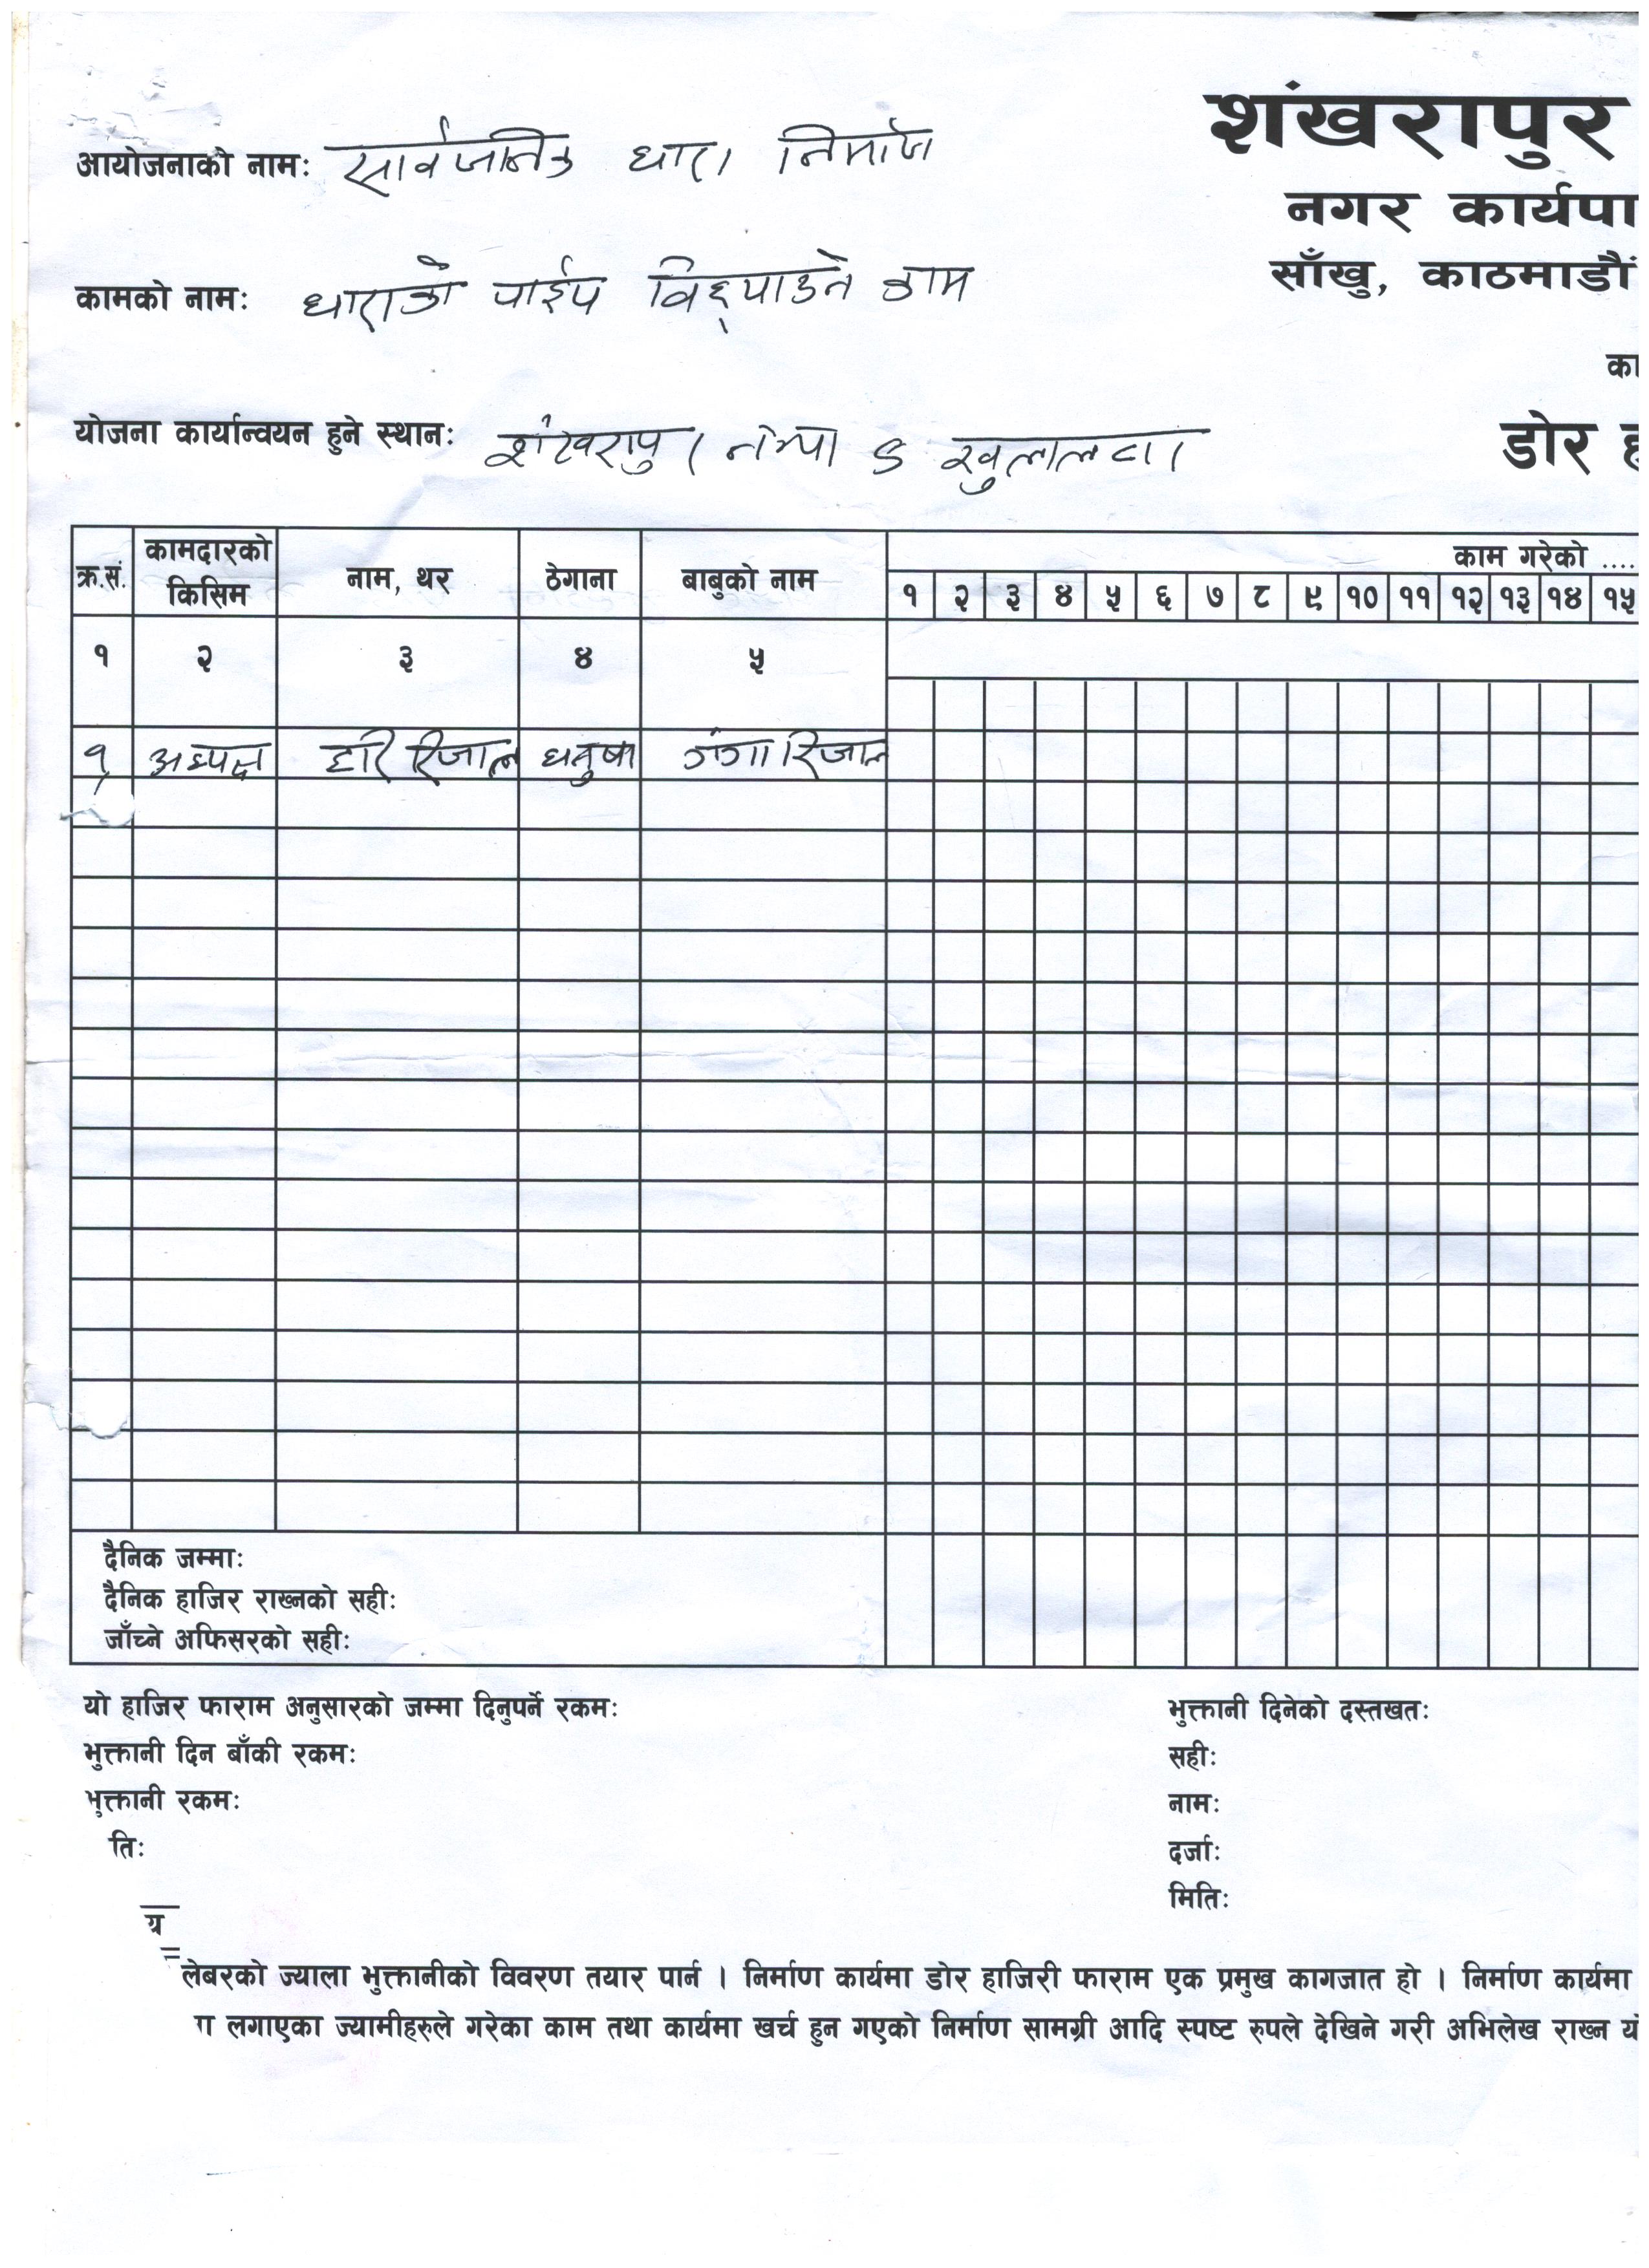 शंखरापुर
आयोजनाको नामः सार्वजनिक धारा निर्माण
नगर कार्यपा
कामको नामः धाराको पाईप विछ्याउने काम
साँखु, काठमाडौं
का
योजना कार्यान्वयन हुने स्थानः शंखरापुर नपा ८ खुलालटार
डोर ह
क्र.सं. कामदारको किसिम नाम, थर ठेगाना बाबुको नाम काम गरेको ....
१ २ ३ ४ ५ ६ ७ ८ ९ १० ११ १२ १३ १४ १५
१ २ ३ ४ ५
१ अध्यक्ष हरि रिजाल धनुषा गंगा रिजाल
दैनिक जम्माः
दैनिक हाजिर राख्नको सहीः
जाँच्ने अफिसरको सहीः
यो हाजिर फाराम अनुसारको जम्मा दिनुपर्ने रकमः भुक्तानी दिनेको दस्तखतः
भुक्तानी दिन बाँकी रकमः सहीः
भुक्तानी रकमः नामः
तिः दर्जाः
मितिः
लेबरको ज्याला भुक्तानीको विवरण तयार पार्न । निर्माण कार्यमा डोर हाजिरी फाराम एक प्रमुख कागजात हो । निर्माण कार्यमा
लगाएका ज्यामीहरुले गरेका काम तथा कार्यमा खर्च हुन गएको निर्माण सामग्री आदि स्पष्ट रुपले देखिने गरी अभिलेख राख्न